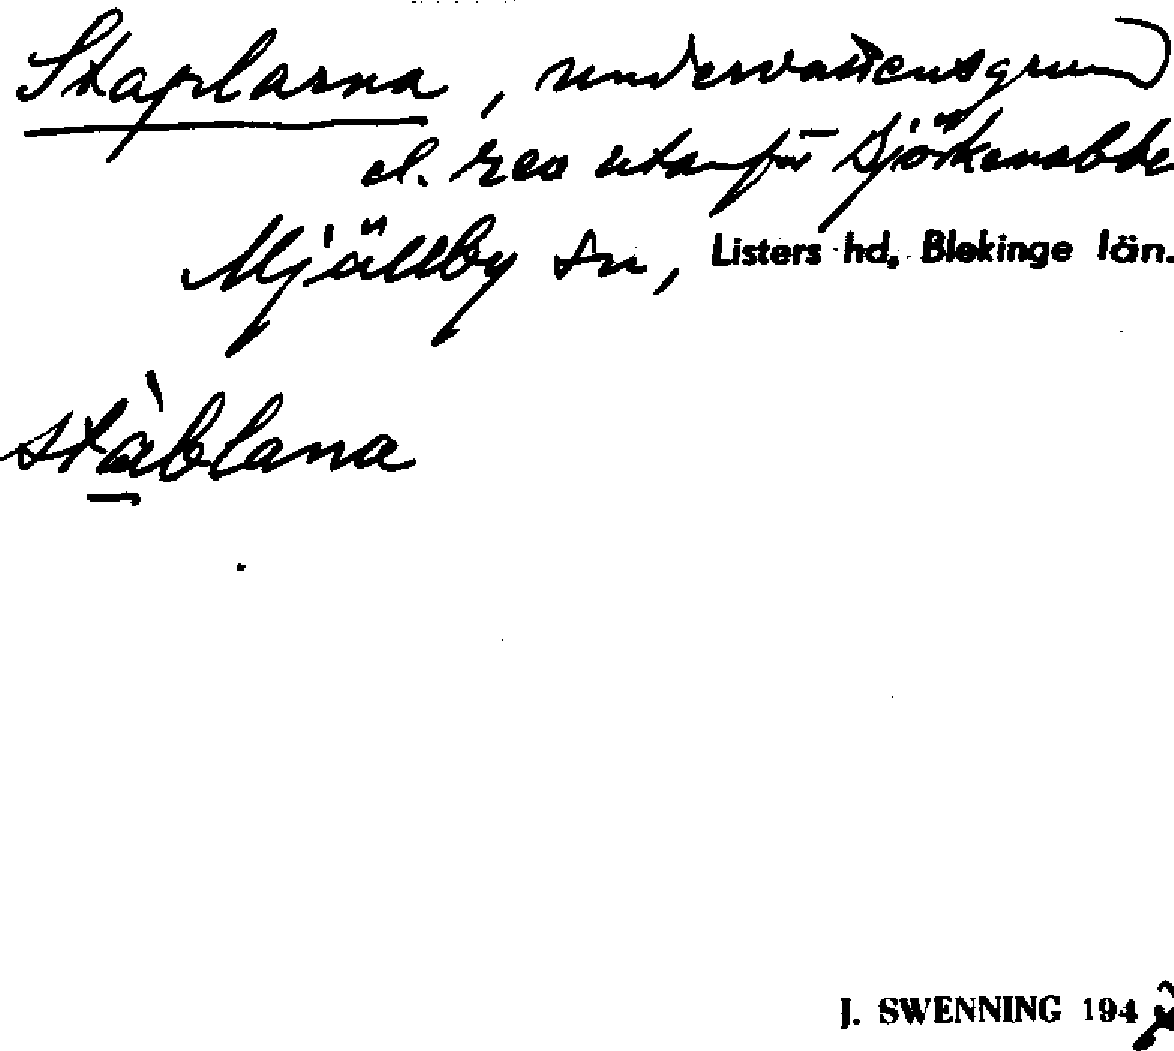 Staplarna, undervattensgrund
el. rev utanför Björkenabben
Mjällby sn, Listers hd, Blekinge län.
stàblana
J. SWENNING 194